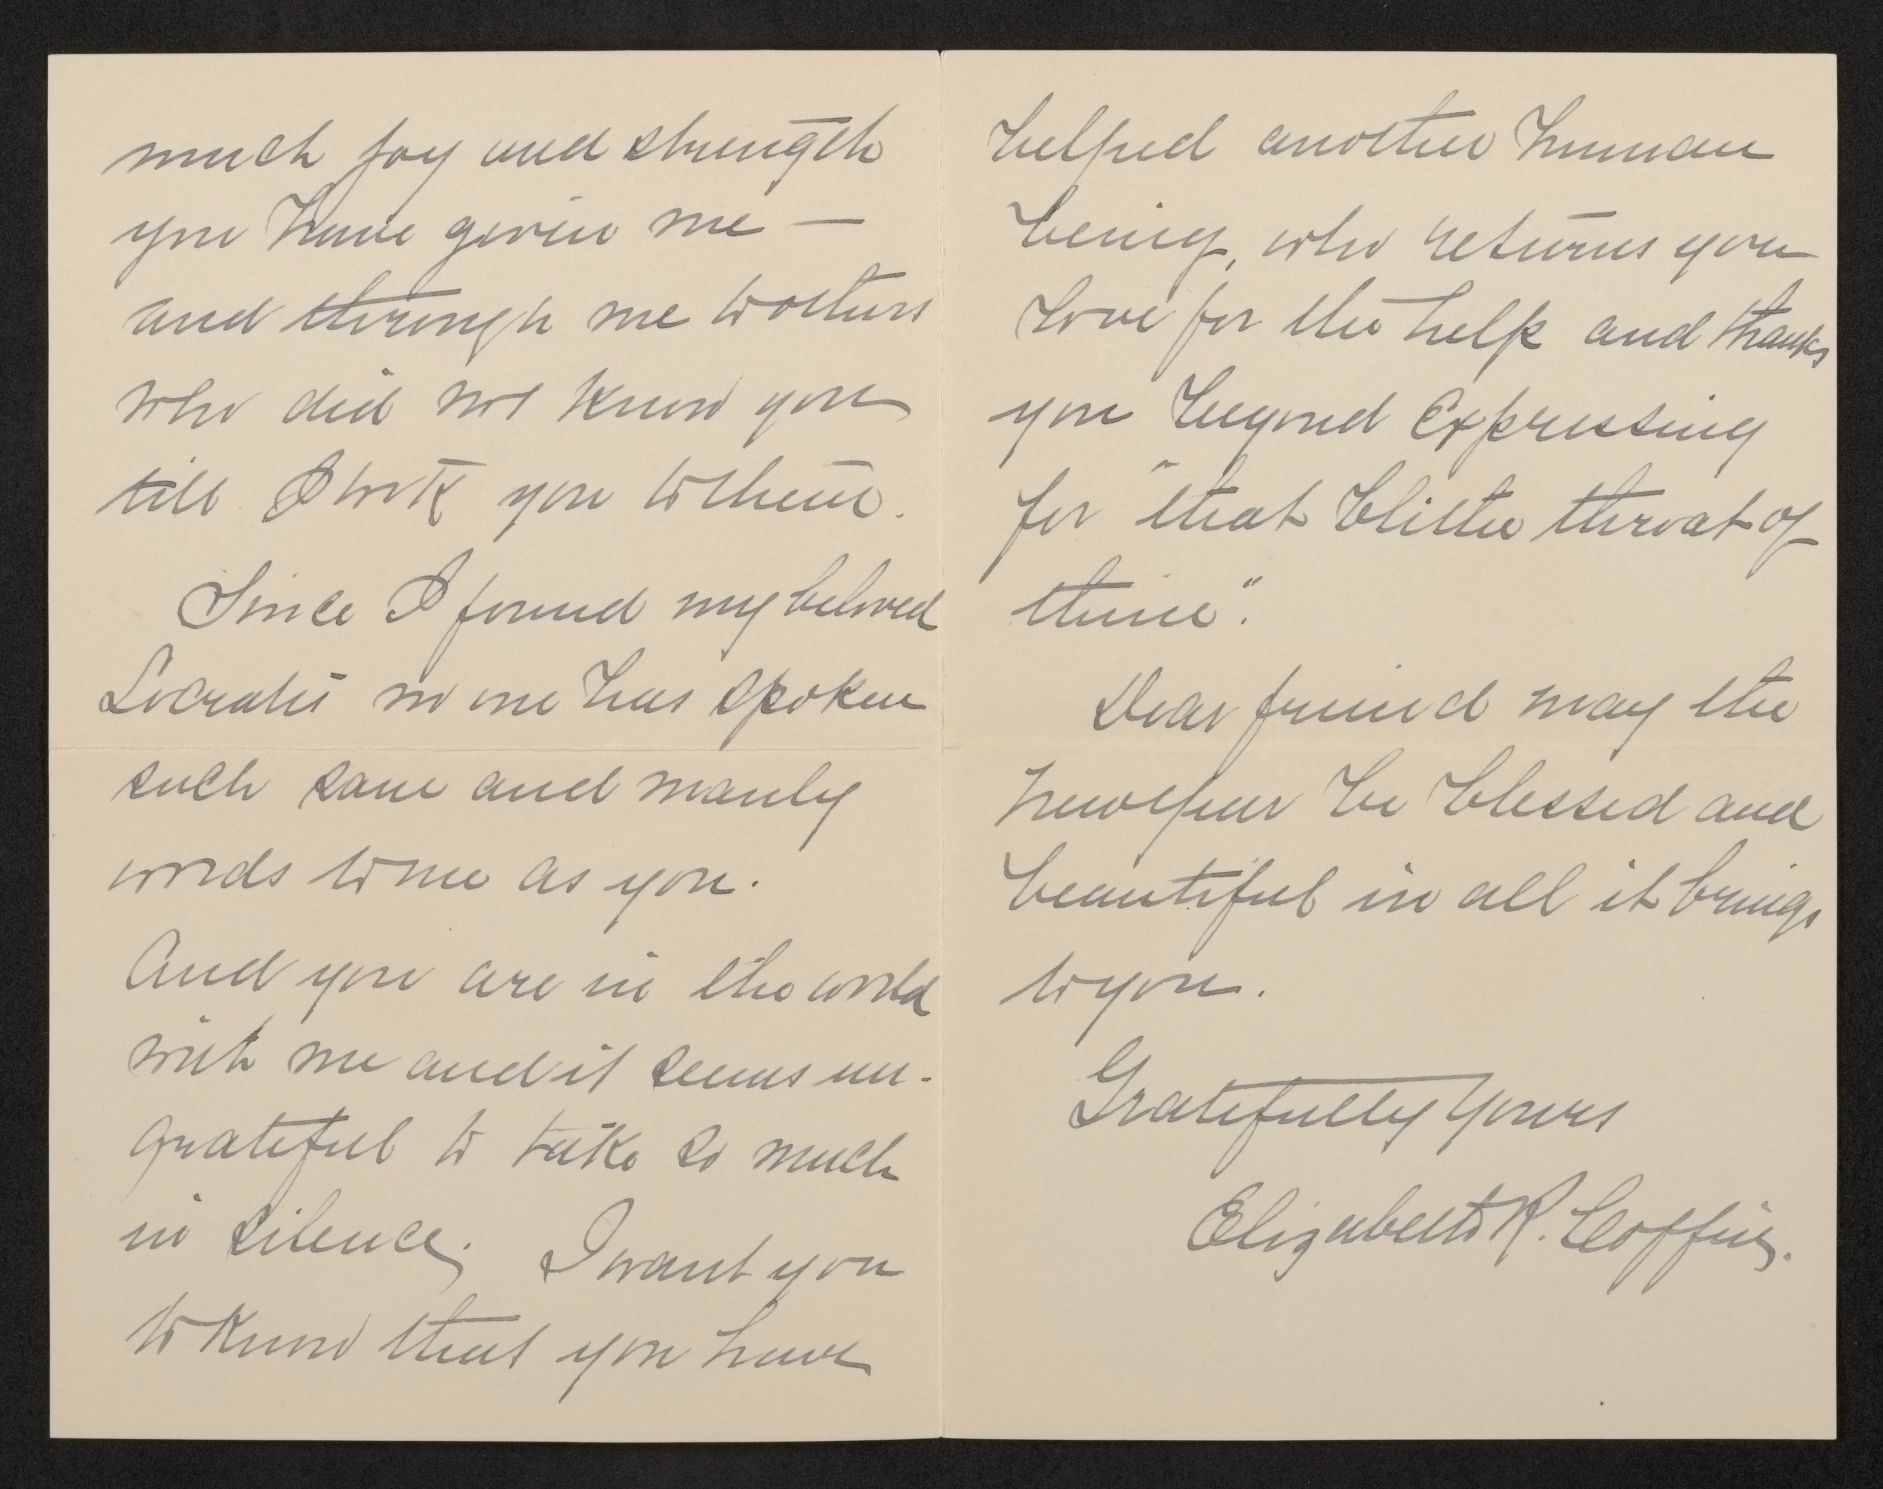 much joy and strength
you have given me —
and through me to others
who did not know you
till I took you to them.
Since I found my beloved
Socrates no one has spoken
such sane and manly
words to me as you.
And you are in the world
with me and it seems un-
grateful to take so much
in silence. I want you
to know that you have
helped another human
being, who returns you
love for the help and thanks
you beyond expressing
for "that blithe throat of
thine".
Dear friend may the
new year be blessed and
beautiful in all it brings
to you.
Gratefully yours
Elizabeth R. Coffin.